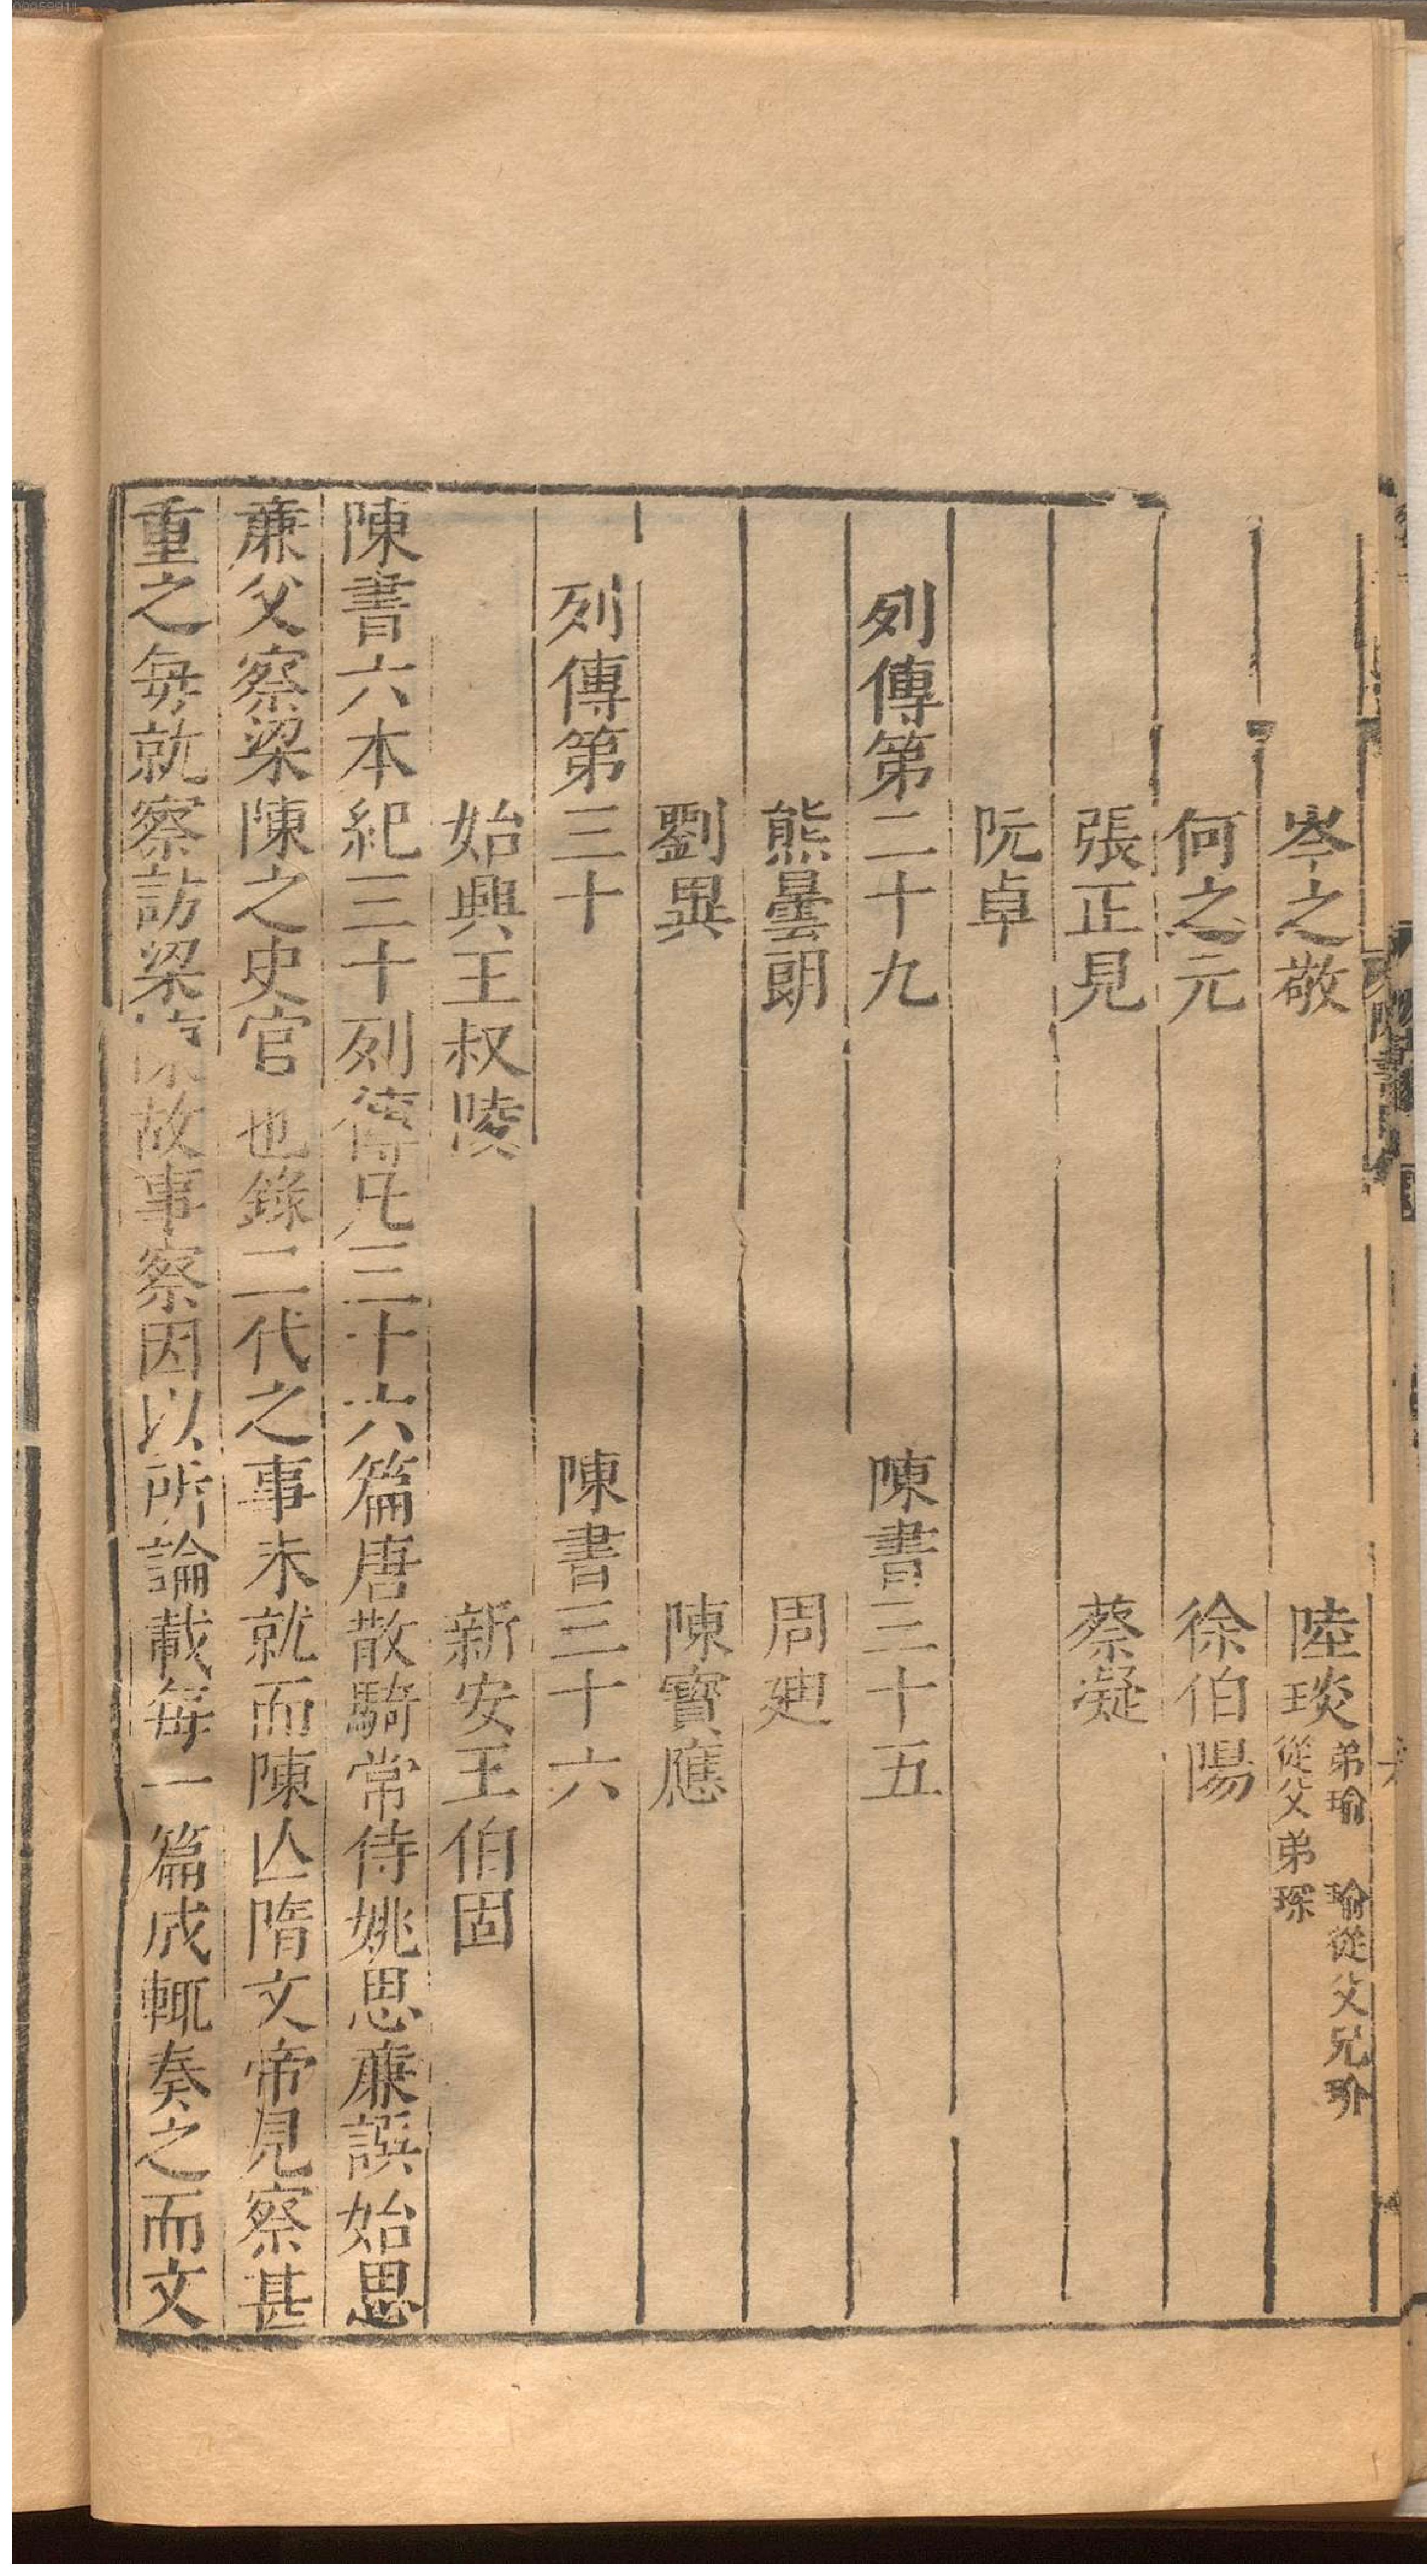 岑之敬　陸琰弟瑜　瑜從父兄玠從父弟琛
何之元　徐伯陽
張正見　蔡凝
阮卓
列傳第二十九　陳書三十五
熊曇朗　周迪
劉異　陳寶應
列傳第三十　陳書三十六
始興王叔陵　新安王伯固
陳書六本紀三十列傳凡三十六篇唐散騎常侍姚思廉譔始思
廉父察梁陳之史官也錄二代之事未就而陳亾隋文帝見察甚
重之每就察訪梁陳故事察因以所論載每一篇成輒奏之而文